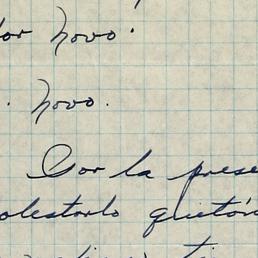 or Novo.
Novo.
Por la prese
olestarlo quitán